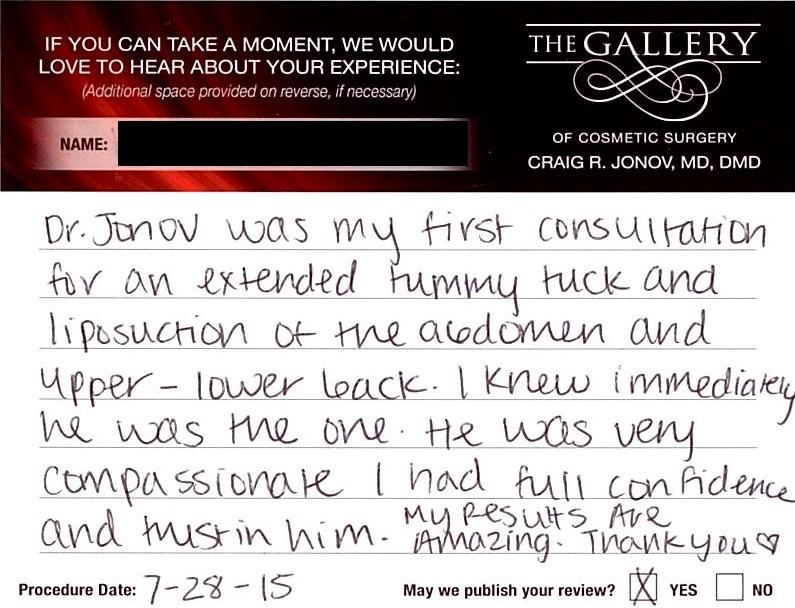 IF YOU CAN TAKE A MOMENT, WE WOULD
LOVE TO HEAR ABOUT YOUR EXPERIENCE:
(Additional space provided on reverse, if necessary)
NAME:
THE GALLERY
OF COSMETIC SURGERY
CRAIG R. JONOV, MD, DMD
Dr. Jonov was my first consultation
for an extended tummy tuck and
liposuction of the abdomen and
upper - lower back. I knew immediately
he was the one. He was very
compassionate I had full confidence
and trust in him. My Results Are
Amazing. Thank you ♡
Procedure Date: 7-28-15 May we publish your review? ☒ YES ☐ NO